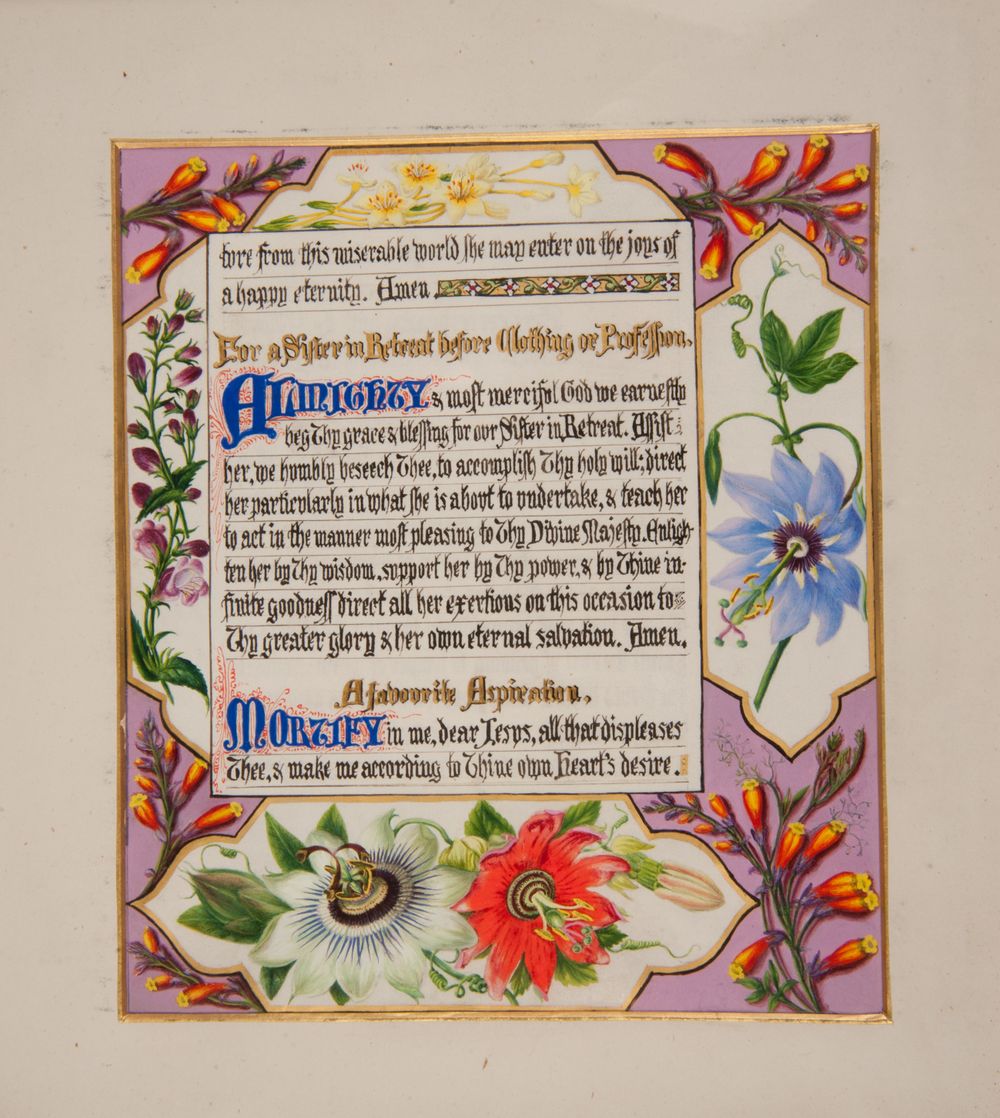 ture from this miserable world she may enter on the joys of
a happy eternity. Amen.
For a Sister in Retreat before Clothing or Profession.
ALMIGHTY & most merciful God we earnestly
beg Thy grace & blessing for our Sister in Retreat. Assist
her, we humbly beseech Thee, to accomplish Thy holy will; direct
her particularly in what she is about to undertake, & teach her
to act in the manner most pleasing to Thy Divine Majesty. Enligh-
ten her by Thy wisdom, support her by Thy power, & by Thine in-
finite goodness direct all her exertions on this occasion to
Thy greater glory & her own eternal salvation. Amen.
A favourite Aspiration.
MORTIFY in me, dear Jesus, all that displeases
Thee, & make me according to Thine own Heart's desire.